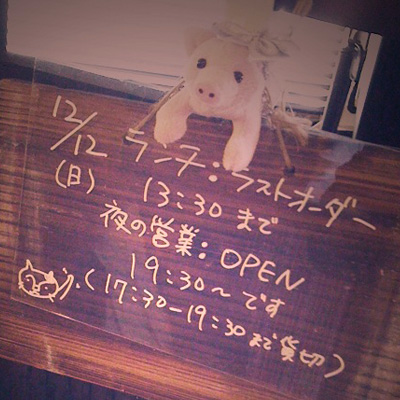 12/12
(日)
ランチ:ラストオーダー
13:30 まで
夜の営業:OPEN
19:30〜です
(17:30-19:30まで貸切)